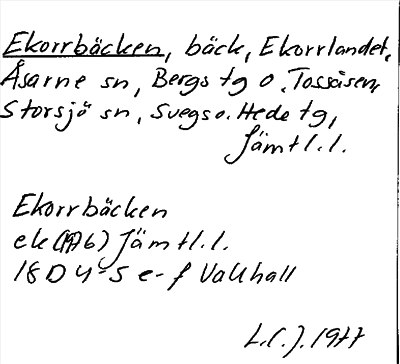 Ekorrbäcken, bäck, Ekorrlandet,
Åsarne sn, Bergs tg o. Tossåsen,
Storsjö sn, Svegs o. Hede tg,
Jämtl.l.
Ekorrbäcken
ek (1976) Jämtl.l.
18 D 4-5 e-f Valhall
L.C.J. 1977